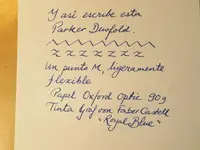 Y así escribe esta
Parker Duofold.
z z z z z z z
Un punto M, ligeramente
flexible
Papel Oxford Optic 90g
Tinta Graf von Faber Castell
"Royal Blue"